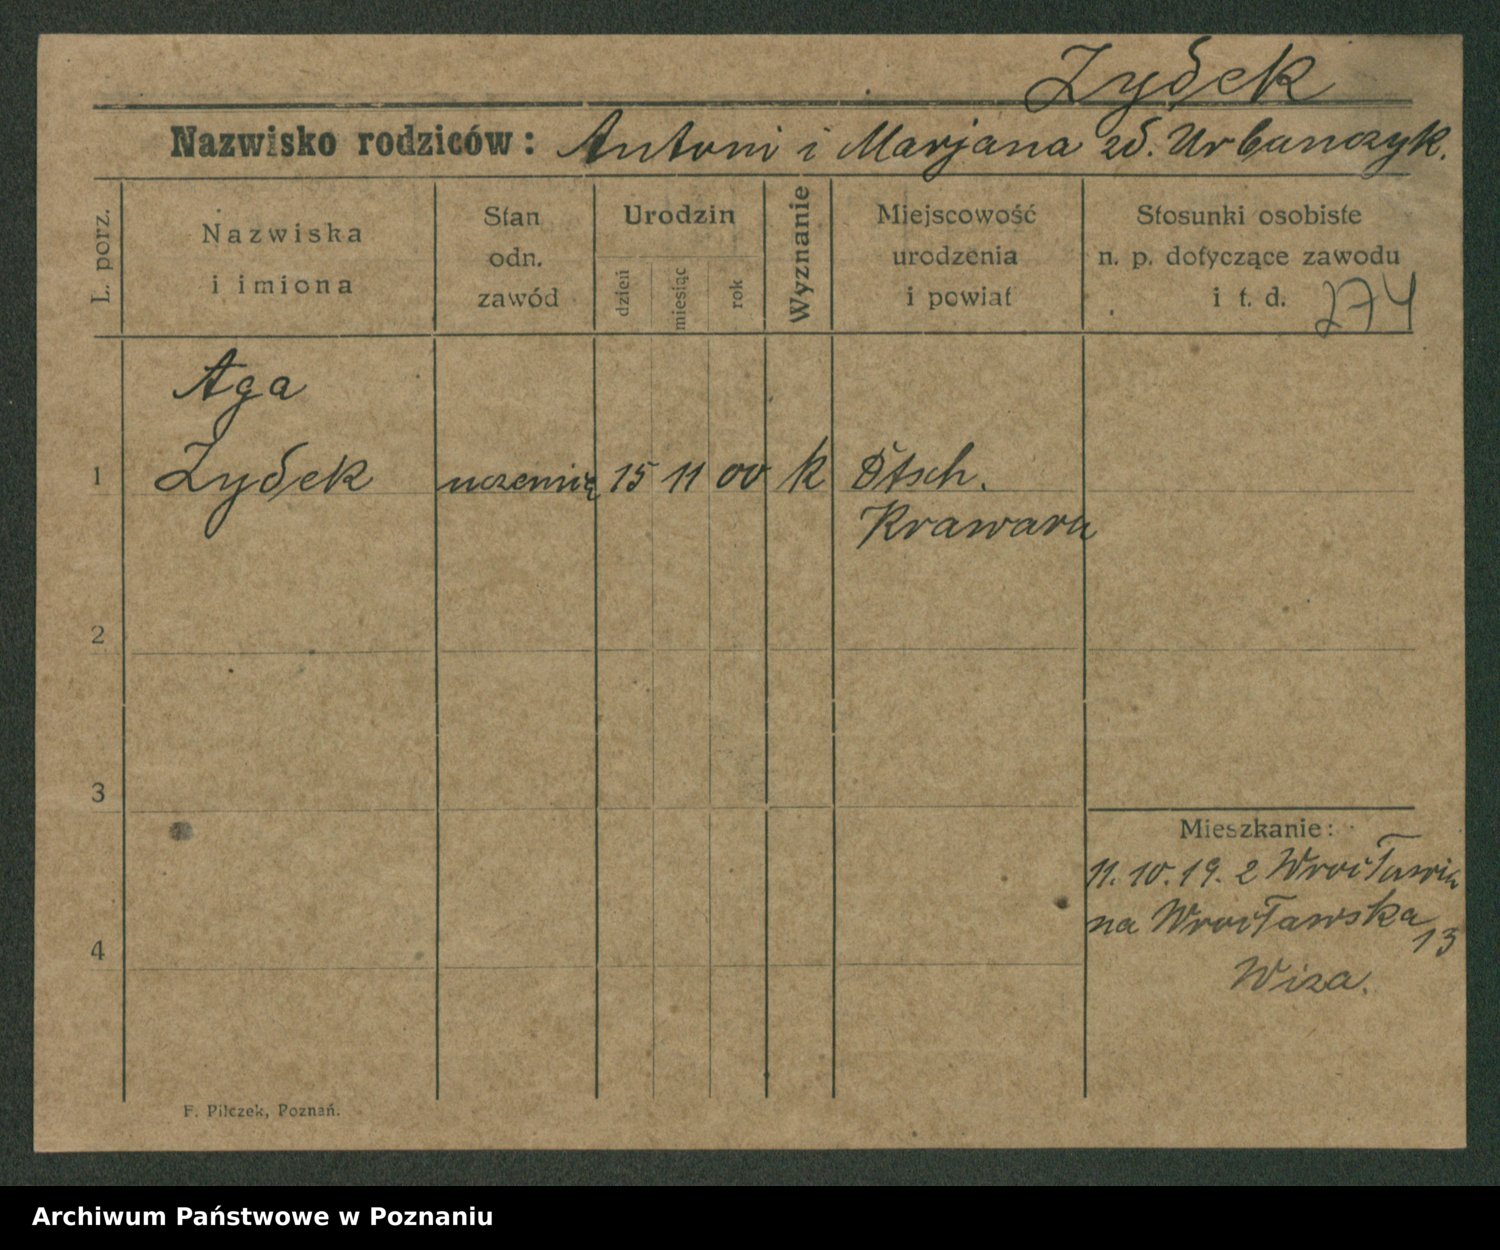 Zydek
Nazwisko rodziców: Antoni i Marjana zd. Urbanczyk.
L. porz.
Nazwiska
i imiona
Stan
odn.
zawód
Urodzin
dzień
miesiąc
rok
Wyznanie
Miejscowość
urodzenia
i powiat
Stosunki osobiste
n. p. dotyczące zawodu
i t. d.
274
Aga
1 Zydek uczennica 15 11 00 k Dtsch.
Krawarn
2
3
4
Mieszkanie:
11. 10. 19. z Wrocławia
na Wrocławska 13
Wiza.
F. Pilczek, Poznań.
Archiwum Państwowe w Poznaniu